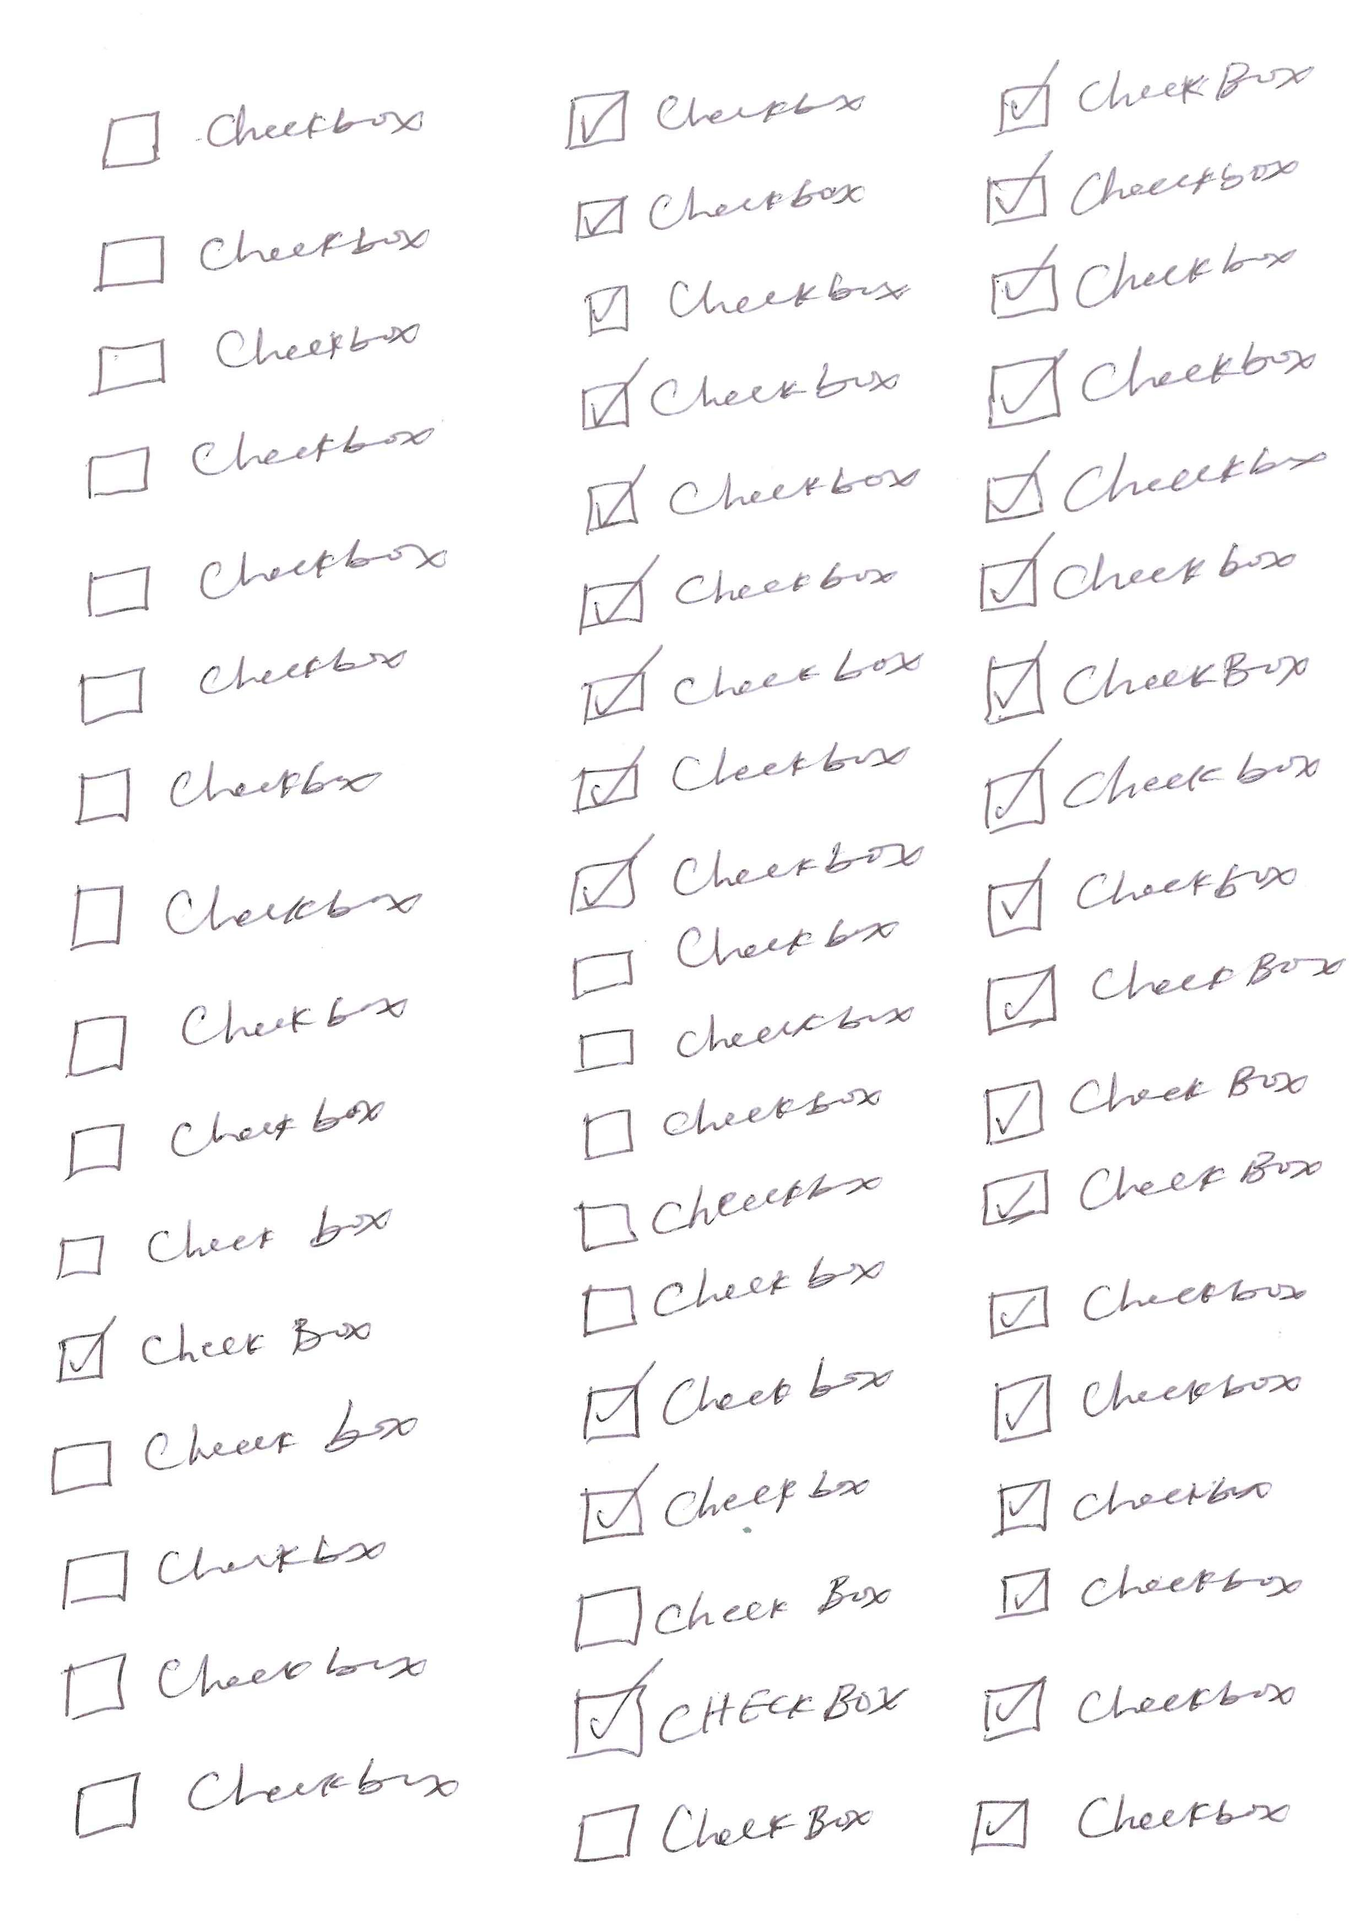 ☐ Checkbox
☐ Checkbox
☐ Checkbox
☐ Checkbox
☐ Checkbox
☐ Checkbox
☐ Checkbox
☐ Checkbox
☐ Check box
☐ Check box
☐ Check box
☑ Check Box
☐ Check box
☐ Checkbox
☐ Check box
☐ Checkbox
☑ Checkbox
☑ Checkbox
☑ Checkbox
☑ Check box
☑ Checkbox
☑ Checkbox
☑ Check box
☑ Checkbox
☑ Checkbox
☐ Check box
☐ Checkbox
☐ Checkbox
☐ Checkbox
☐ Check box
☑ Check box
☑ Check box
☐ Check Box
☑ CHECK BOX
☐ Check Box
☑ Check Box
☑ Checkbox
☑ Checkbox
☑ Checkbox
☑ Checkbox
☑ Check box
☑ Check Box
☑ Check box
☑ Checkbox
☑ Check Box
☑ Check Box
☑ Check Box
☑ Checkbox
☑ Checkbox
☑ Checkbox
☑ Checkbox
☑ Checkbox
☑ Checkbox